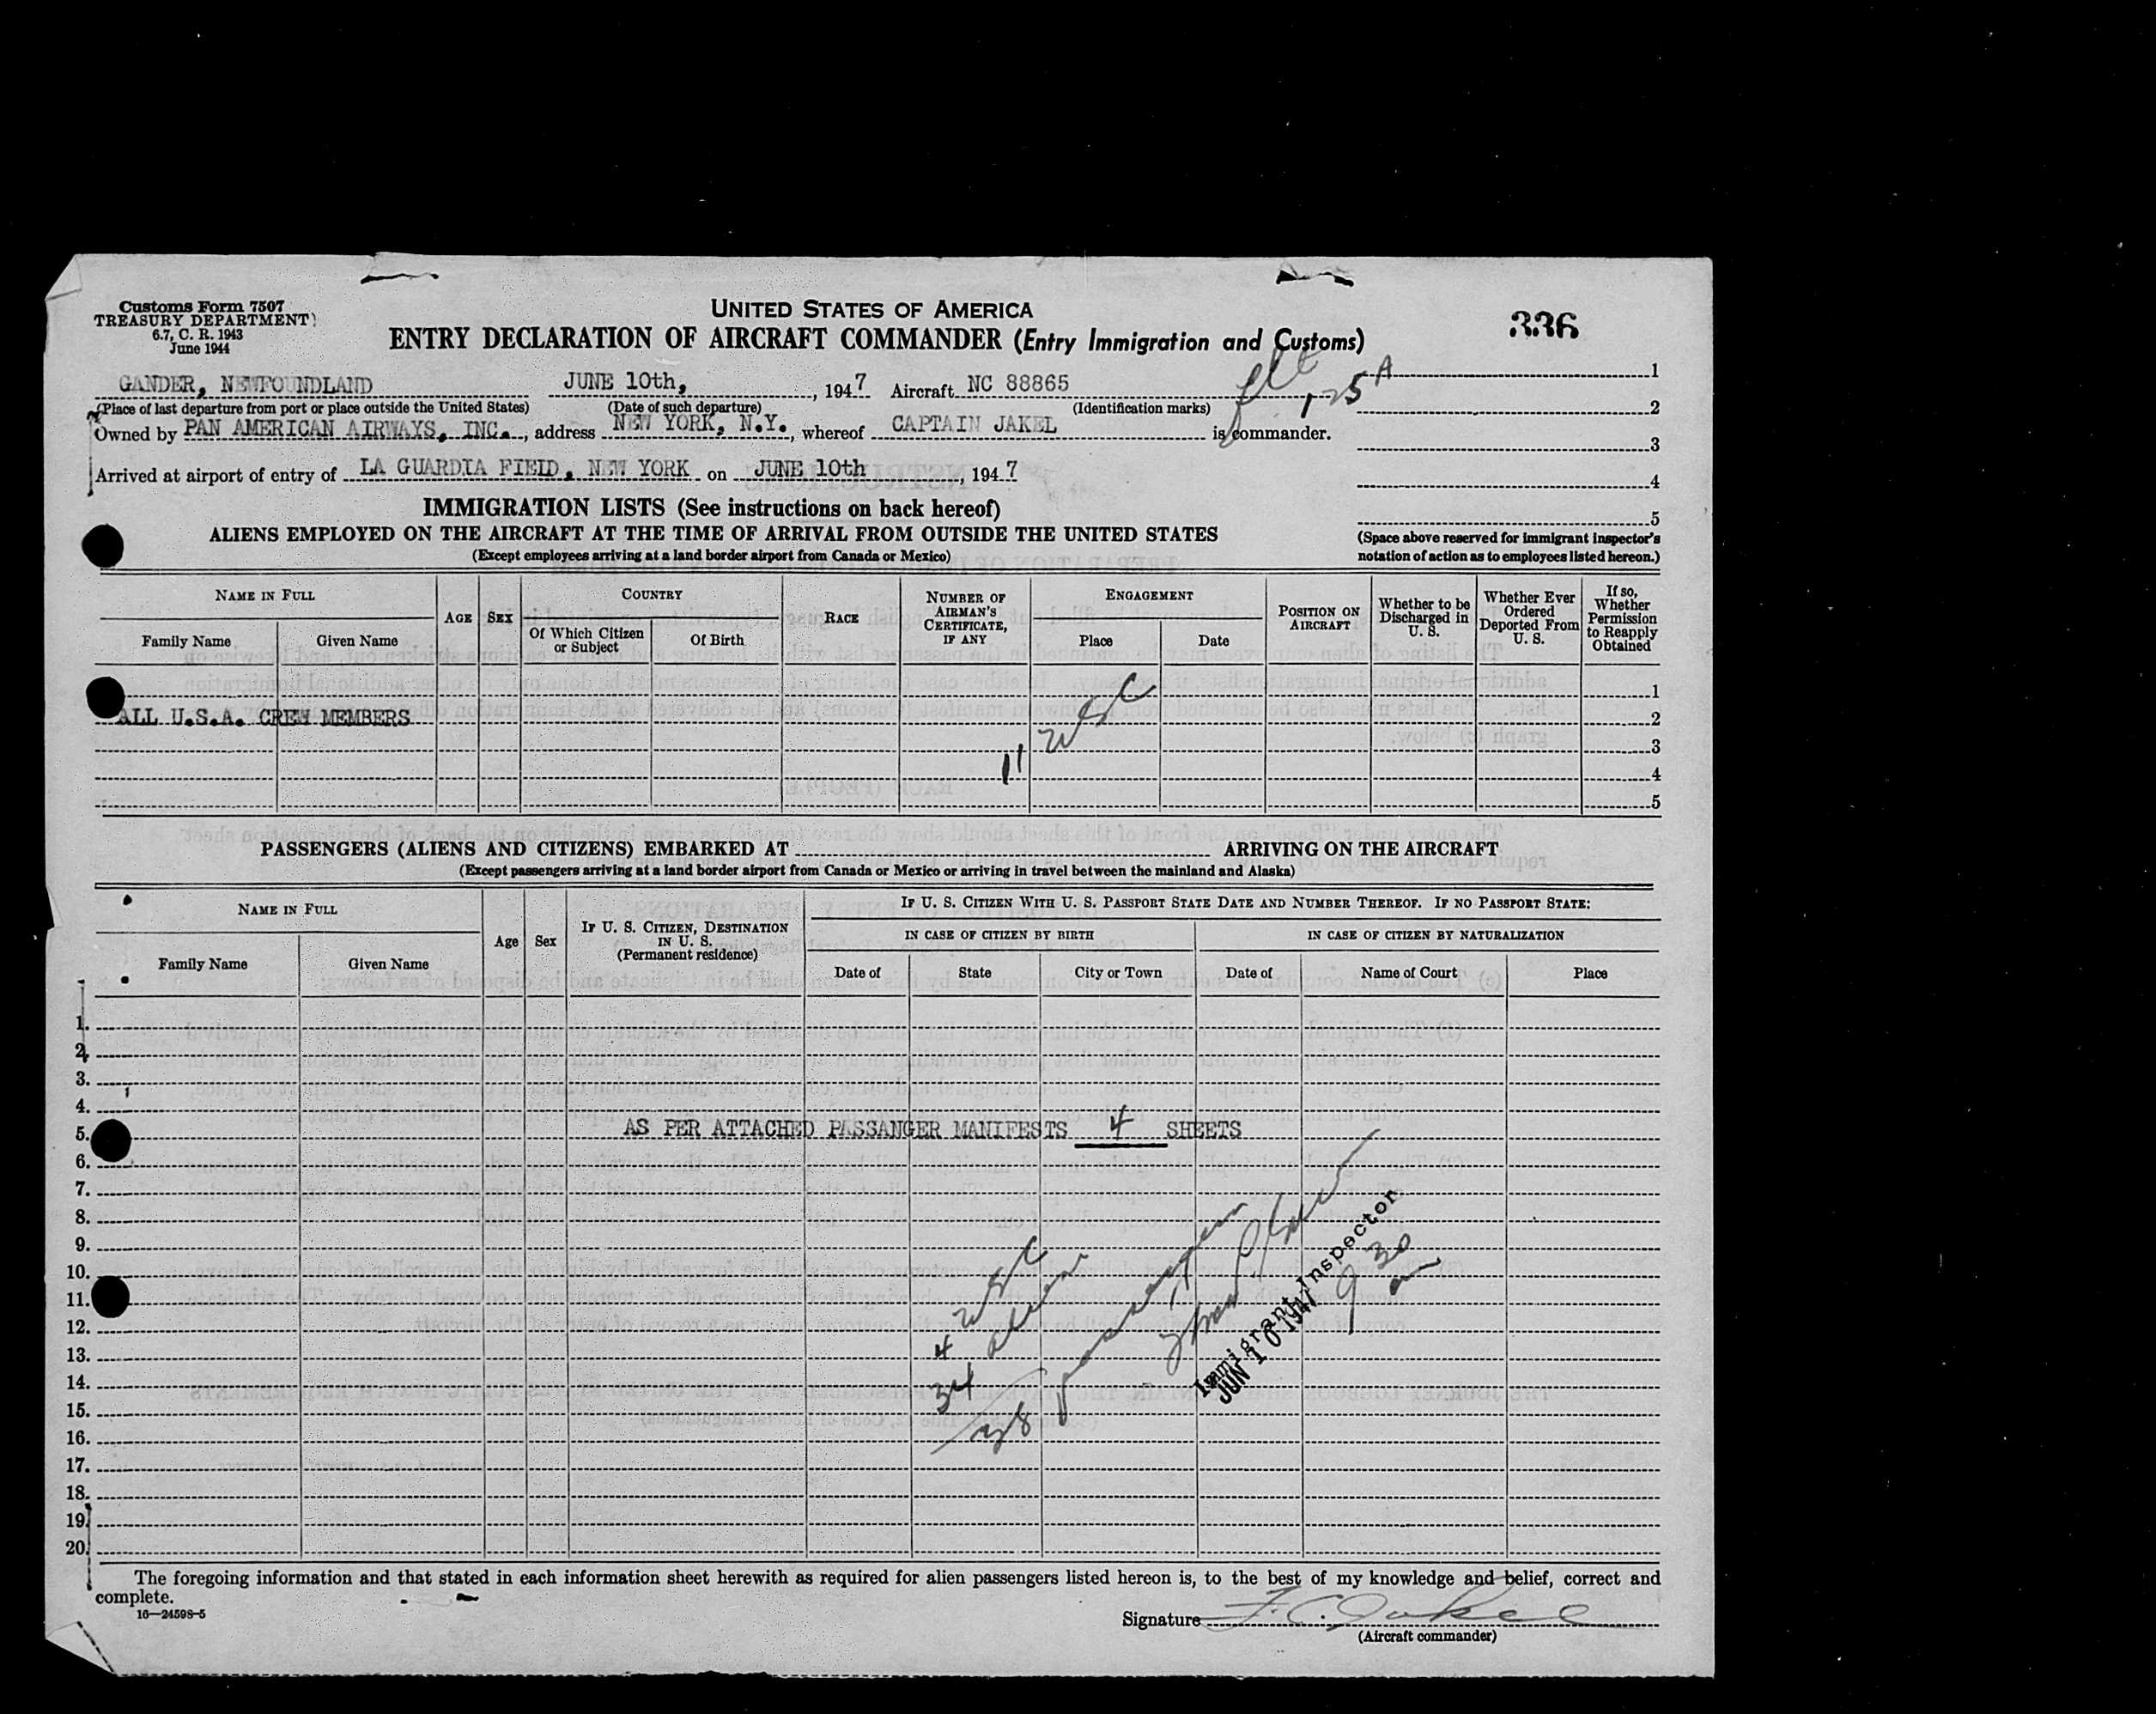 Customs Form 7507
TREASURY DEPARTMENT
6.7, C. R. 1943
June 1944
UNITED STATES OF AMERICA
ENTRY DECLARATION OF AIRCRAFT COMMANDER (Entry Immigration and Customs)
336
GANDER, NEWFOUNDLAND JUNE 10th, , 1947 Aircraft NC 88865
(Place of last departure from port or place outside the United States) (Date of such departure) (Identification marks)
flt 125A
Owned by PAN AMERICAN AIRWAYS, INC. , address NEW YORK, N.Y. , whereof CAPTAIN JAKEL is commander.
Arrived at airport of entry of LA GUARDIA FIELD, NEW YORK on JUNE 10th , 1947
1
2
3
4
5
(Space above reserved for immigrant inspector's
notation of action as to employees listed hereon.)
IMMIGRATION LISTS (See instructions on back hereof)
ALIENS EMPLOYED ON THE AIRCRAFT AT THE TIME OF ARRIVAL FROM OUTSIDE THE UNITED STATES
(Except employees arriving at a land border airport from Canada or Mexico)
NAME IN FULL
Family Name Given Name
AGE
SEX
COUNTRY
Of Which Citizen
or Subject
Of Birth
RACE
NUMBER OF
AIRMAN'S
CERTIFICATE,
IF ANY
ENGAGEMENT
Place Date
POSITION ON
AIRCRAFT
Whether to be
Discharged in
U. S.
Whether Ever
Ordered
Deported From
U. S.
If so,
Whether
Permission
to Reapply
Obtained
1
ALL U.S.A. CREW MEMBERS 2
3
4
5
11 USC
PASSENGERS (ALIENS AND CITIZENS) EMBARKED AT ARRIVING ON THE AIRCRAFT
(Except passengers arriving at a land border airport from Canada or Mexico or arriving in travel between the mainland and Alaska)
NAME IN FULL
Family Name Given Name
Age
Sex
IF U. S. CITIZEN, DESTINATION
IN U. S.
(Permanent residence)
IF U. S. CITIZEN WITH U. S. PASSPORT STATE DATE AND NUMBER THEREOF. IF NO PASSPORT STATE:
IN CASE OF CITIZEN BY BIRTH IN CASE OF CITIZEN BY NATURALIZATION
Date of State City or Town Date of Name of Court Place
1.
2.
3.
4.
5. AS PER ATTACHED PASSANGER MANIFESTS 4 SHEETS
6.
7.
8.
9.
10.
11.
12.
13.
14.
15.
16.
17.
18.
19.
20.
4 USC
34 aliens
38 passengers
Immigrant Inspector
JUN 10 1947
9 30 am
The foregoing information and that stated in each information sheet herewith as required for alien passengers listed hereon is, to the best of my knowledge and belief, correct and
complete.
16—24598-5
Signature F. C. Jakel
(Aircraft commander)